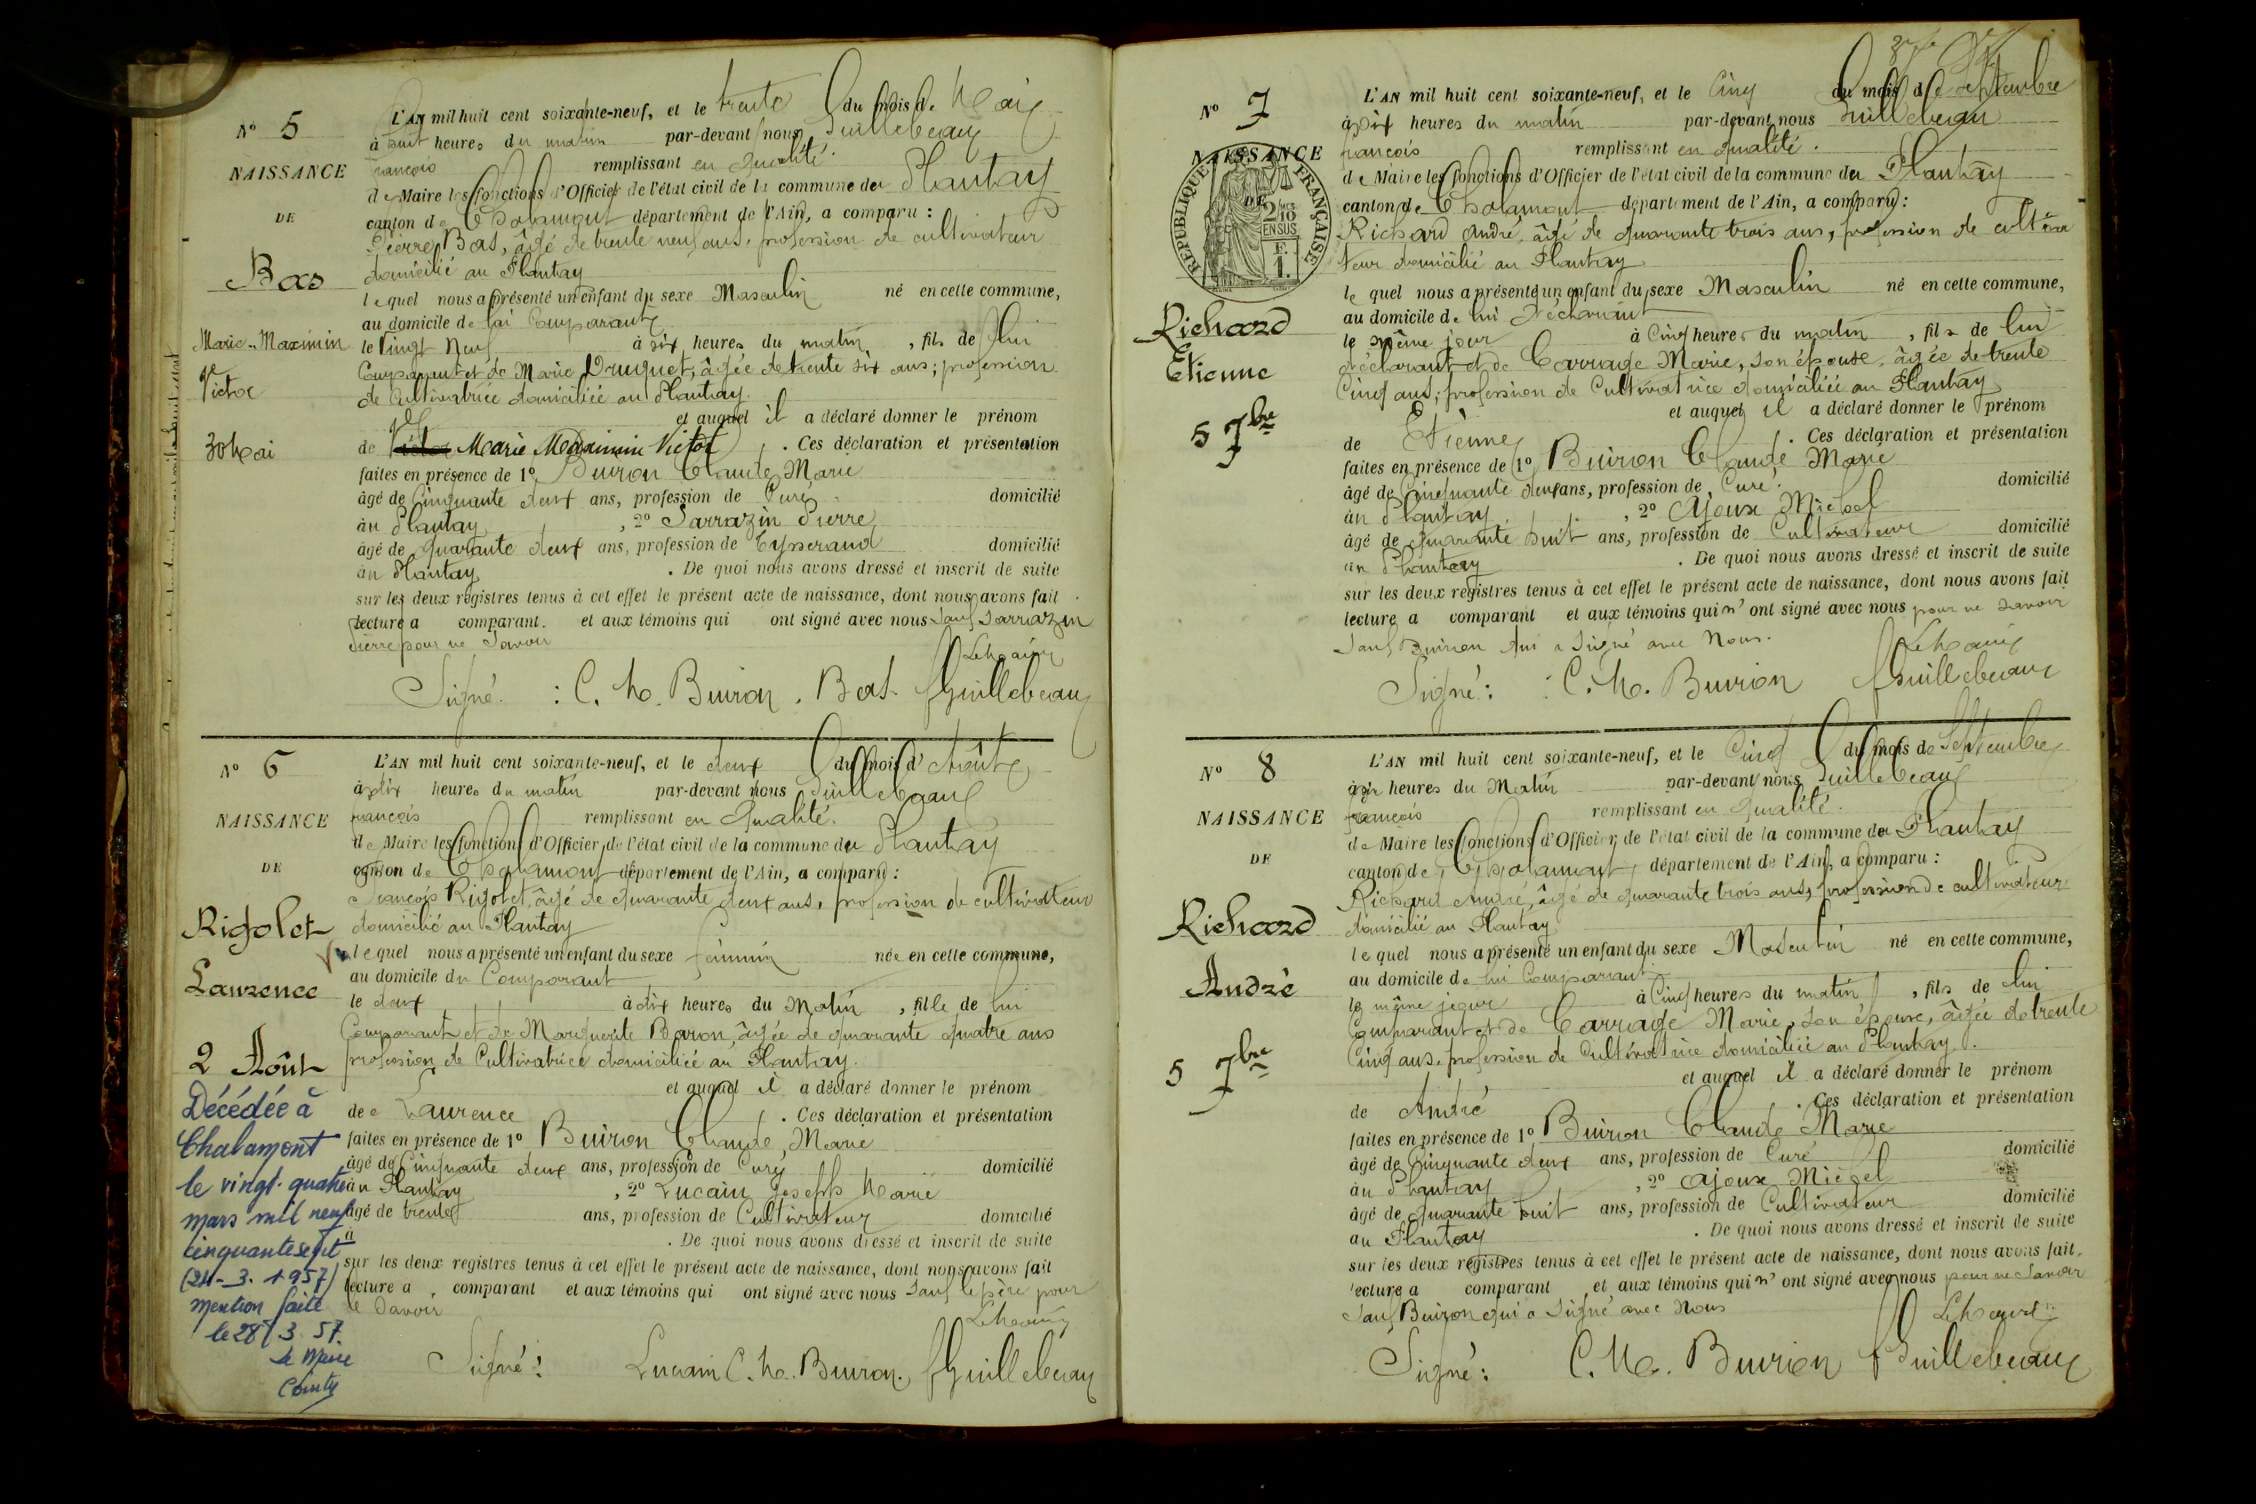 N° 5
NAISSANCE
DE
Bas
Marie-Maximin
Victor
30 Mai
L'AN mil huit cent soixante-neuf, et le trente du mois de Mai
à huit heures du matin par-devant nous Guillebeau
françois remplissant en qualité.
de Maire les fonctions d'Officier de l'état civil de la commune du Plantay
canton de Chalamont département de l'Ain, a comparu :
Pierre Bas, âgé de trente neuf ans, profession de cultivateur
domicilié au Plantay
lequel nous a présenté un enfant du sexe Masculin né en cette commune,
au domicile de lui Comparant
le vingt Neuf à dix heures du matin, fils de lui
Comparant et de Marie Druguet, âgée de trente six ans; profession
de Cultivatrice domiciliée au Plantay.
et auquel il a déclaré donner le prénom
de Marie Maximin Victor . Ces déclaration et présentation
faites en présence de 1° Buiron Claude Marie
âgé de Cinquante deux ans, profession de Curé domicilié
au Plantay , 2° Sarrazin Pierre
âgé de quarante deux ans, profession de Tysserand domicilié
au Plantay . De quoi nous avons dressé et inscrit de suite
sur les deux registres tenus à cet effet le présent acte de naissance, dont nous avons fait
lecture a comparant. et aux témoins qui ont signé avec nous Sauf Sarrazin
Pierre pour ne Savoir
Le Maire
Signé : C. M. Buiron. Bas. f Guillebeau
N° 6
NAISSANCE
DE
Rigolet
Laurence
2 Août
Décédée à
Chalamont
le vingt-quatre
mars mil neuf
cinquante sept
(24-3-1957)
mention faite
le 28/3.57.
Le Maire
L'AN mil huit cent soixante-neuf, et le deux du mois d'Août
à dix heures du matin par-devant nous Guillebeau
françois remplissant en qualité.
de Maire les fonctions d'Officier de l'état civil de la commune du Plantay
canton de Chalamont département de l'Ain, a comparu :
François Rigolet, âgé de quarante deux ans, profession de cultivateur
domicilié au Plantay
lequel nous a présenté un enfant du sexe féminin née en cette commune,
au domicile du Comparant
le deux à dix heures du Matin, fille de lui
Comparant et de Marguerite Baron, âgée de quarante quatre ans
profession de Cultivatrice domiciliée au Plantay.
et auquel il a déclaré donner le prénom
de Laurence . Ces déclaration et présentation
faites en présence de 1° Buiron Claude, Marie
âgé de Cinquante deux ans, profession de Curé domicilié
au Plantay , 2° Lucain Joseph Marie
âgé de trente ans, profession de Cultivateur domicilié
à . De quoi nous avons dressé et inscrit de suite
sur les deux registres tenus à cet effet le présent acte de naissance, dont nous avons fait
lecture a comparant et aux témoins qui ont signé avec nous Sauf le père pour
ne Savoir
Le Maire
Signé : Lucain C. M. Buiron. f Guillebeau
N° 7
NAISSANCE
DE
RÉPUBLIQUE FRANÇAISE
2/10 EN SUS
F. 1.
Richard
Etienne
5 7bre
L'AN mil huit cent soixante-neuf, et le Cinq du mois de Septembre
à dix heures du matin par-devant nous Guillebeau
françois remplissant en qualité.
de Maire les fonctions d'Officier de l'état civil de la commune du Plantay
canton de Chalamont département de l'Ain, a comparu :
Richard André, âgé de quarante trois ans, profession de cultiva
teur domicilié au Plantay
le quel nous a présenté un enfant du sexe Masculin né en cette commune,
au domicile de lui déclarant
le même jour à Cinq heures du matin, fils de lui
déclarant et de Carriage Marie, son épouse, âgée de trente
Cinq ans; profession de Cultivatrice domiciliée au Plantay
et auquel il a déclaré donner le prénom
de Etienne . Ces déclaration et présentation
faites en présence de 1° Buiron Claude Marie
âgé de Cinquante deux ans, profession de Curé. domicilié
au Plantay , 2° Ajoux Michel
âgé de quarante huit ans, profession de Cultivateur domicilié
au Plantay . De quoi nous avons dressé et inscrit de suite
sur les deux registres tenus à cet effet le présent acte de naissance, dont nous avons fait
lecture a comparant et aux témoins qui n'ont signé avec nous pour ne Savoir
Sauf Buiron qui a Signé avec Nous.
Le Maire
Signé : C. M. Buiron f Guillebeau
N° 8
NAISSANCE
DE
Richard
André
5 7bre
L'AN mil huit cent soixante-neuf, et le Cinq du mois de Septembre
à dix heures du Matin par-devant nous Guillebeau
françois remplissant en qualité.
de Maire les fonctions d'Officier de l'état civil de la commune du Plantay
canton de Chalamont, département de l'Ain, a comparu :
Richard André, âgé de quarante trois ans, profession de cultivateur
domicilié au Plantay
le quel nous a présenté un enfant du sexe Masculin né en cette commune,
au domicile de lui Comparant
le même jour à Cinq heures du matin, fils de lui
Comparant et de Carriage Marie, son épouse, âgée de trente
Cinq ans, profession de Cultivatrice domiciliée au Plantay.
et auquel il a déclaré donner le prénom
de André . Ces déclaration et présentation
faites en présence de 1° Buiron Claude Marie
âgé de Cinquante deux ans, profession de Curé domicilié
au Plantay , 2° Ajoux Michel
âgé de quarante huit ans, profession de Cultivateur domicilié
au Plantay . De quoi nous avons dressé et inscrit de suite
sur les deux registres tenus à cet effet le présent acte de naissance, dont nous avons fait
lecture a comparant et aux témoins qui n'ont signé avec nous pour ne Savoir
Sauf Buiron qui a Signé avec Nous
Le Maire
Signé : C. M. Buiron f Guillebeau